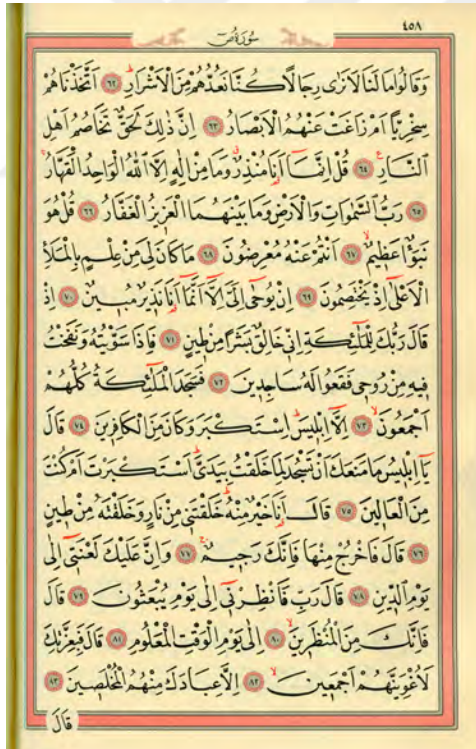 ٤٥٨
سُورَةُ صٓ
وَقَالُوا مَا لَنَا لَا نَرٰى رِجَالًا كُنَّا نَعُدُّهُمْ مِنَ الْاَشْرَارِۜ ﴿٦٢﴾ اَتَّخَذْنَاهُمْ
سِخْرِيًّا اَمْ زَاغَتْ عَنْهُمُ الْاَبْصَارُ ﴿٦٣﴾ اِنَّ ذٰلِكَ لَحَقٌّ تَخَاصُمُ اَهْلِ
النَّارِ۟ ﴿٦٤﴾ قُلْ اِنَّمَٓا اَنَا۬ مُنْذِرٌۗ وَمَا مِنْ اِلٰهٍ اِلَّا اللّٰهُ الْوَاحِدُ الْقَهَّارُۚ
﴿٦٥﴾ رَبُّ السَّمٰوَاتِ وَالْاَرْضِ وَمَا بَيْنَهُمَا الْعَزِيزُ الْغَفَّارُ ﴿٦٦﴾ قُلْ هُوَ
نَبَؤٌا عَظِيمٌۙ ﴿٦٧﴾ اَنْتُمْ عَنْهُ مُعْرِضُونَ ﴿٦٨﴾ مَا كَانَ لِيَ مِنْ عِلْمٍ بِالْمَلَأِ
الْاَعْلٰٓى اِذْ يَخْتَصِمُونَ ﴿٦٩﴾ اِنْ يُوحٰٓى اِلَيَّ اِلَّٓا اَنَّمَٓا اَنَا۬ نَذِيرٌ مُبِينٌ ﴿٧٠﴾ اِذْ
قَالَ رَبُّكَ لِلْمَلٰٓئِكَةِ اِنِّي خَالِقٌ بَشَرًا مِنْ طِينٍ ﴿٧١﴾ فَاِذَا سَوَّيْتُهُ وَنَفَخْتُ
فِيهِ مِنْ رُوحِي فَقَعُوا لَهُ سَاجِدِينَ ﴿٧٢﴾ فَسَجَدَ الْمَلٰٓئِكَةُ كُلُّهُمْ
اَجْمَعُونَۙ ﴿٧٣﴾ اِلَّٓا اِبْلِيسَۜ اِسْتَكْبَرَ وَكَانَ مِنَ الْكَافِرِينَ ﴿٧٤﴾ قَالَ
يَٓا اِبْلِيسُ مَا مَنَعَكَ اَنْ تَسْجُدَ لِمَا خَلَقْتُ بِيَدَيَّۜ اَسْتَكْبَرْتَ اَمْ كُنْتَ
مِنَ الْعَالِينَ ﴿٧٥﴾ قَالَ اَنَا۬ خَيْرٌ مِنْهُۜ خَلَقْتَنِي مِنْ نَارٍ وَخَلَقْتَهُ مِنْ طِينٍ
﴿٧٦﴾ قَالَ فَاخْرُجْ مِنْهَا فَاِنَّكَ رَجِيمٌۚ ﴿٧٧﴾ وَاِنَّ عَلَيْكَ لَعْنَتِٓي اِلٰى
يَوْمِ الدِّينِ ﴿٧٨﴾ قَالَ رَبِّ فَاَنْظِرْنِٓي اِلٰى يَوْمِ يُبْعَثُونَ ﴿٧٩﴾ قَالَ
فَاِنَّكَ مِنَ الْمُنْظَرِينَۙ ﴿٨٠﴾ اِلٰى يَوْمِ الْوَقْتِ الْمَعْلُومِ ﴿٨١﴾ قَالَ فَبِعِزَّتِكَ
لَاُغْوِيَنَّهُمْ اَجْمَعِينَۙ ﴿٨٢﴾ اِلَّا عِبَادَكَ مِنْهُمُ الْمُخْلَصِينَ ﴿٨٣﴾
قَالَ